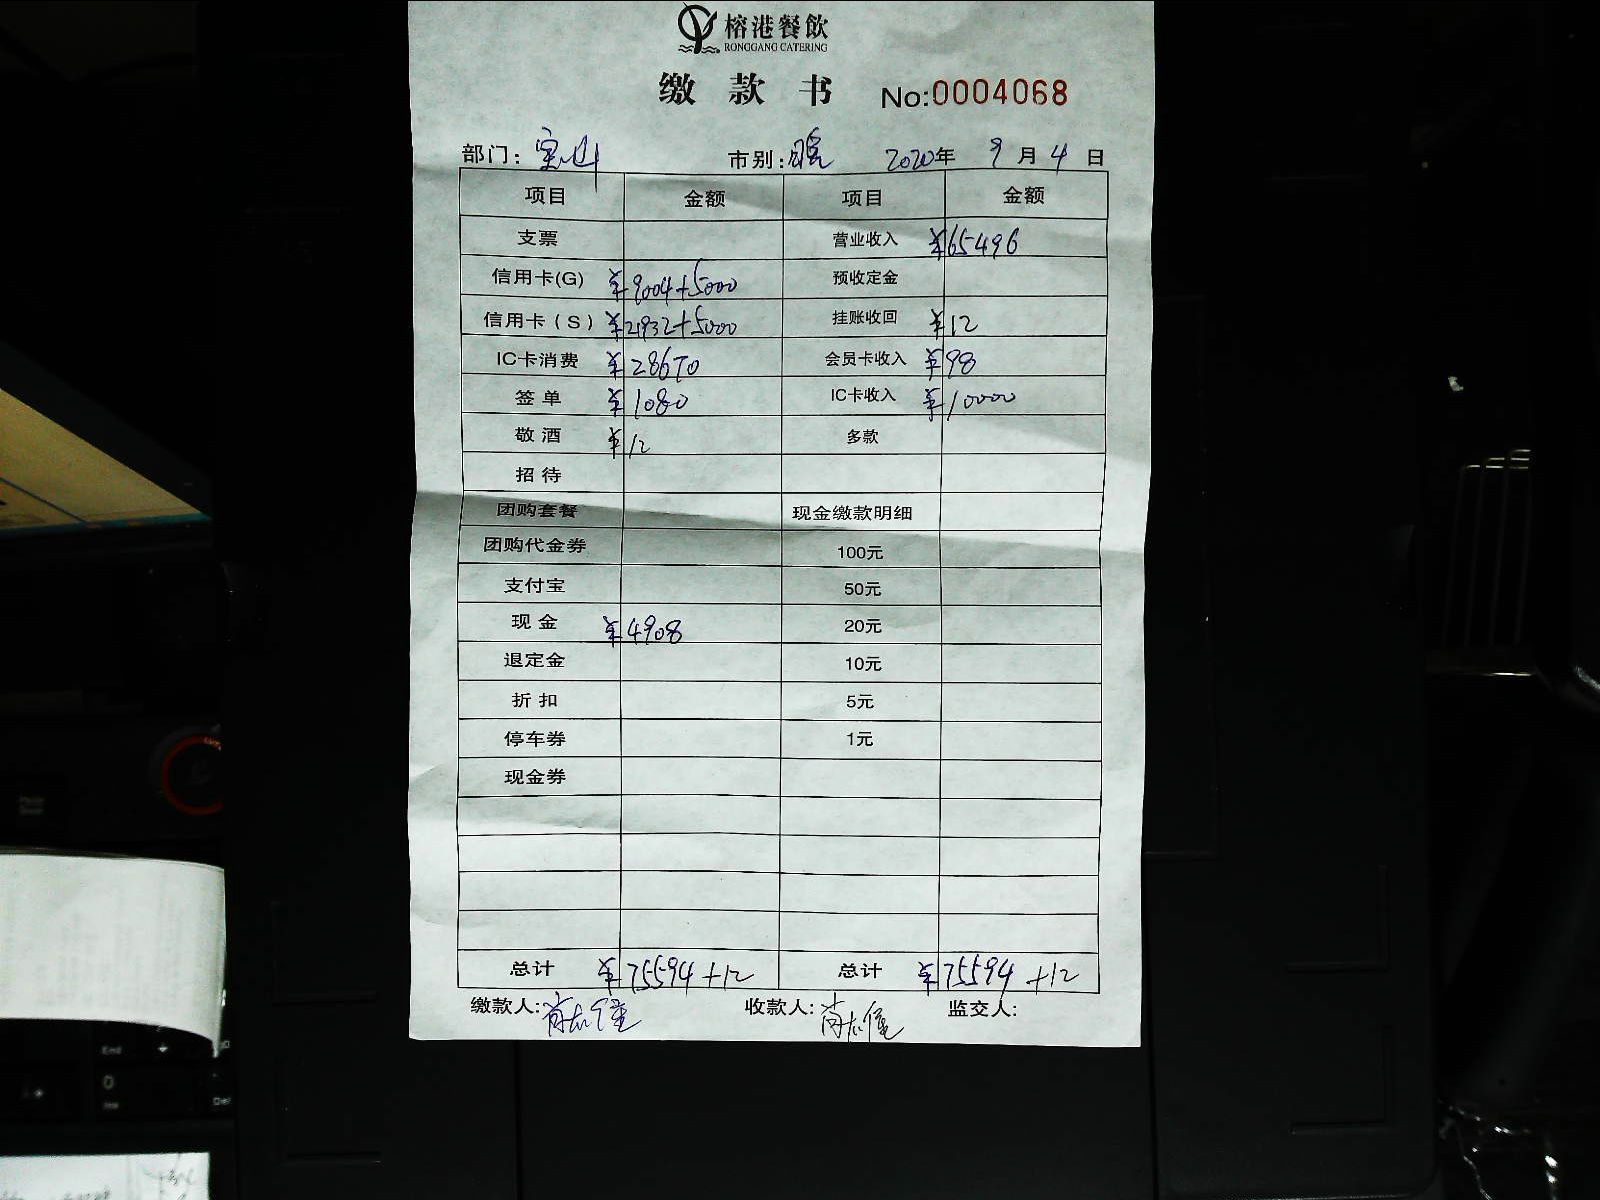 榕港餐飲
RONGGANG CATERING
缴款书 No:0004068
部门: 宝山 市别: 晚 2020年 9月4日
项目 金额 项目 金额
支票 营业收入 ¥65496
信用卡(G) ¥9004+5000 预收定金
信用卡(S) ¥21932+5000 挂账收回 ¥12
IC卡消费 ¥28670 会员卡收入 ¥98
签单 ¥1080 IC卡收入 ¥10000
敬酒 ¥12 多款
招待
团购套餐 现金缴款明细
团购代金券 100元
支付宝 50元
现金 ¥4908 20元
退定金 10元
折扣 5元
停车券 1元
现金券
总计 ¥75594+12 总计 ¥75594+12
缴款人: 收款人: 监交人:
End
0
Ins Del